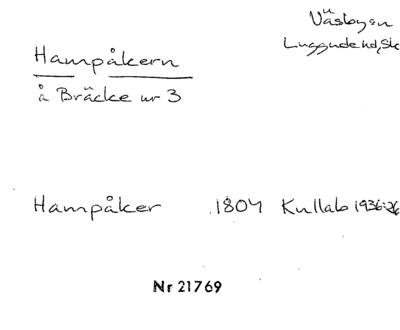 Väsbysn
Luggude hd, Sk
Hampåkern
å Bräcke nr 3
Hampåker 1804 Kullab 1936:26
Nr 21769